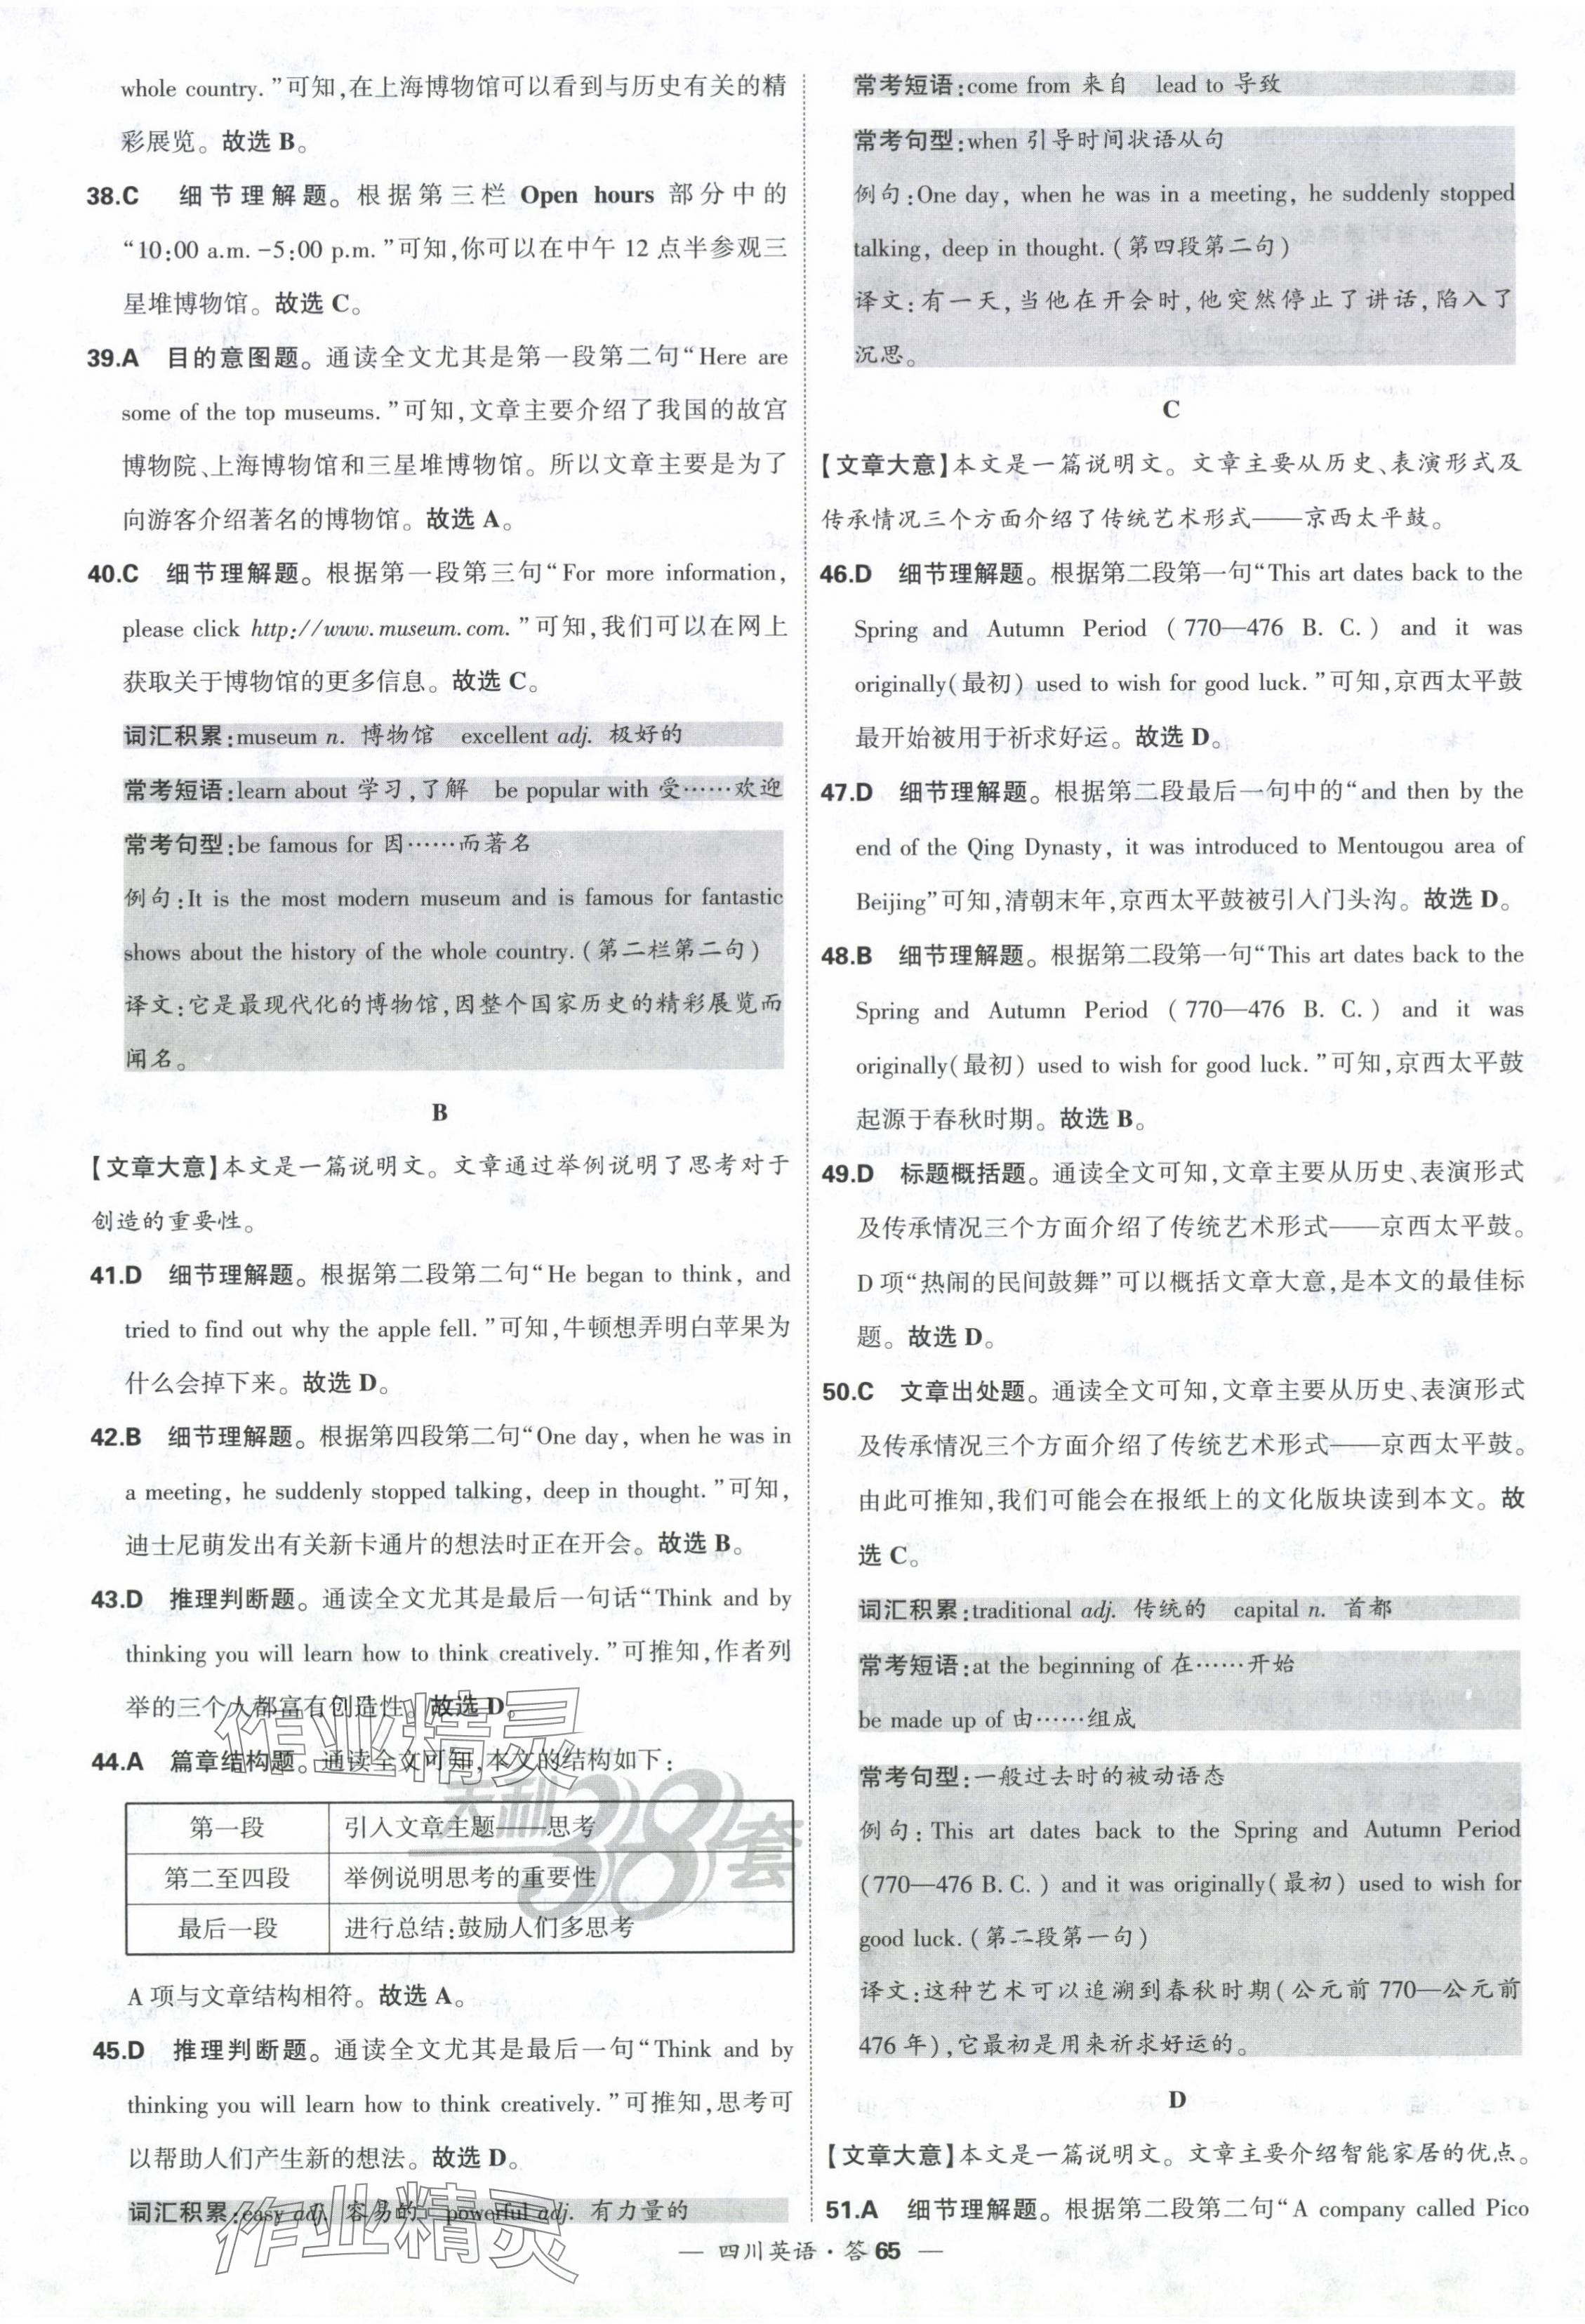 whole country. ”可知,在上海博物馆可以看到与历史有关的精
彩展览。故选 B。
38.C 细节理解题。根据第三栏 Open hours 部分中的
“10:00 a.m. -5:00 p.m. ”可知,你可以在中午 12 点半参观三
星堆博物馆。故选 C。
39.A 目的意图题。通读全文尤其是第一段第二句“Here are
some of the top museums. ”可知,文章主要介绍了我国的故宫
博物院、上海博物馆和三星堆博物馆。所以文章主要是为了
向游客介绍著名的博物馆。故选 A。
40.C 细节理解题。根据第一段第三句“For more information,
please click http://www.museum.com. ”可知,我们可以在网上
获取关于博物馆的更多信息。故选 C。
词汇积累:museum n. 博物馆 excellent adj. 极好的
常考短语:learn about 学习,了解 be popular with 受……欢迎
常考句型:be famous for 因……而著名
例句:It is the most modern museum and is famous for fantastic
shows about the history of the whole country. (第二栏第二句)
译文:它是最现代化的博物馆,因整个国家历史的精彩展览而
闻名。
B
【文章大意】本文是一篇说明文。文章通过举例说明了思考对于
创造的重要性。
41.D 细节理解题。根据第二段第二句“He began to think, and
tried to find out why the apple fell. ”可知,牛顿想弄明白苹果为
什么会掉下来。故选 D。
42.B 细节理解题。根据第四段第二句“One day, when he was in
a meeting, he suddenly stopped talking, deep in thought. ”可知,
迪士尼萌发出有关新卡通片的想法时正在开会。故选 B。
43.D 推理判断题。通读全文尤其是最后一句话“Think and by
thinking you will learn how to think creatively. ”可推知,作者列
举的三个人都富有创造性。故选 D。
44.A 篇章结构题。通读全文可知,本文的结构如下:
第一段 引入文章主题——思考
第二至四段 举例说明思考的重要性
最后一段 进行总结:鼓励人们多思考
A 项与文章结构相符。故选 A。
45.D 推理判断题。通读全文尤其是最后一句“Think and by
thinking you will learn how to think creatively. ”可推知,思考可
以帮助人们产生新的想法。故选 D。
词汇积累:easy adj. 容易的 powerful adj. 有力量的
常考短语:come from 来自 lead to 导致
常考句型:when 引导时间状语从句
例句:One day, when he was in a meeting, he suddenly stopped
talking, deep in thought. (第四段第二句)
译文:有一天,当他在开会时,他突然停止了讲话,陷入了
沉思。
C
【文章大意】本文是一篇说明文。文章主要从历史、表演形式及
传承情况三个方面介绍了传统艺术形式——京西太平鼓。
46.D 细节理解题。根据第二段第一句“This art dates back to the
Spring and Autumn Period (770—476 B. C.) and it was
originally(最初) used to wish for good luck. ”可知,京西太平鼓
最开始被用于祈求好运。故选 D。
47.D 细节理解题。根据第二段最后一句中的“and then by the
end of the Qing Dynasty, it was introduced to Mentougou area of
Beijing”可知,清朝末年,京西太平鼓被引入门头沟。故选 D。
48.B 细节理解题。根据第二段第一句“This art dates back to the
Spring and Autumn Period (770—476 B. C.) and it was
originally(最初) used to wish for good luck. ”可知,京西太平鼓
起源于春秋时期。故选 B。
49.D 标题概括题。通读全文可知,文章主要从历史、表演形式
及传承情况三个方面介绍了传统艺术形式——京西太平鼓。
D 项“热闹的民间鼓舞”可以概括文章大意,是本文的最佳标
题。故选 D。
50.C 文章出处题。通读全文可知,文章主要从历史、表演形式
及传承情况三个方面介绍了传统艺术形式——京西太平鼓。
由此可推知,我们可能会在报纸上的文化版块读到本文。故
选 C。
词汇积累:traditional adj. 传统的 capital n. 首都
常考短语:at the beginning of 在……开始
be made up of 由……组成
常考句型:一般过去时的被动语态
例句:This art dates back to the Spring and Autumn Period
(770—476 B.C.) and it was originally(最初) used to wish for
good luck. (第二段第一句)
译文:这种艺术可以追溯到春秋时期(公元前 770—公元前
476 年),它最初是用来祈求好运的。
D
【文章大意】本文是一篇说明文。文章主要介绍智能家居的优点。
51.A 细节理解题。根据第二段第二句“A company called Pico
— 四川英语·答 65 —
作业精灵
天利38套
作业精灵